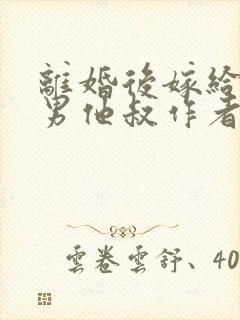 離婚後嫁給
男他叔作者
雲卷雲舒、40